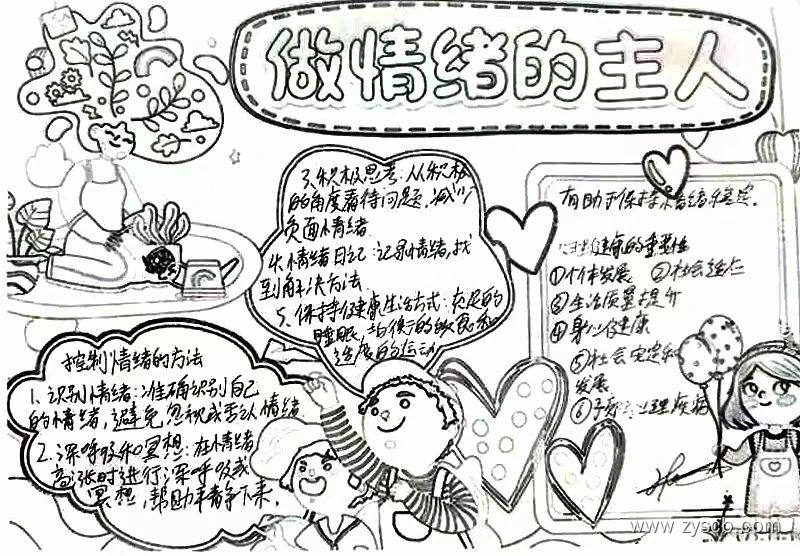 做情绪的主人
控制情绪的方法
1.识别情绪:准确识别自己
的情绪,避免忽视或否认情绪
2.深呼吸和冥想:在情绪
高涨时进行深呼吸或
冥想,帮助平静下来.
3.积极思考:从积极
的角度看待问题,减少
负面情绪
4.情绪日记:记录情绪,找
到解决方法.
5.保持健康生活方式:充足的
睡眠,均衡的饮食和
适度的运动
有助于保持情绪稳定.
心理健康的重要性
①个体发展 ②社会适应
③生活质量提升
④身心健康
⑤社会稳定和
发展
⑥预防心理疾病